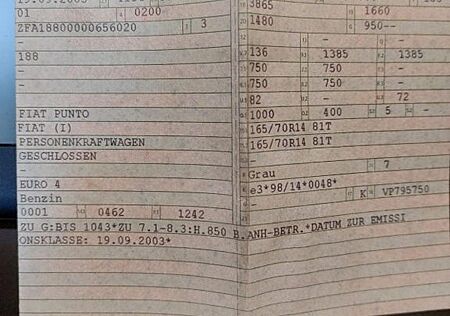 19.09.2003
01 0200
ZFA18800000656020 3
-
-
188
-
-
-
FIAT PUNTO
FIAT (I)
PERSONENKRAFTWAGEN
GESCHLOSSEN
-
EURO 4
Benzin
0001 0462 1242
3865 1660
1480 950--
- -
- -
136 1385 1385
750 750 -
750 750 -
82 - 72
1000 400 5 -
165/70R14 81T
165/70R14 81T
-
Grau 7
e3*98/14*0048*
K VP795750
-
ZU G:BIS 1043*ZU 7.1-8.3:H.850 B.ANH-BETR.*DATUM ZUR EMISSI
ONSKLASSE: 19.09.2003*